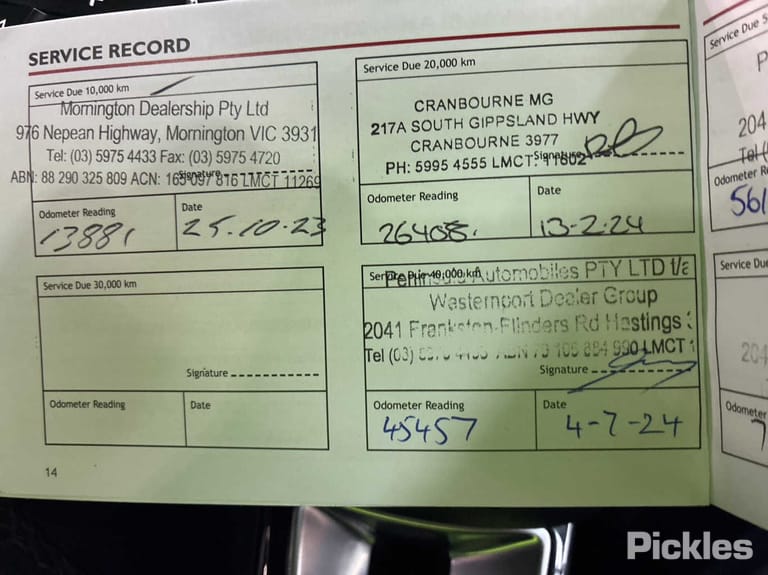 SERVICE RECORD
Service Due 10,000 km
Mornington Dealership Pty Ltd
976 Nepean Highway, Mornington VIC 3931
Tel: (03) 5975 4433 Fax: (03) 5975 4720
Signature
ABN: 88 290 325 809 ACN: 165 097 816 LMCT 11269
Odometer Reading
13881
Date
25.10.23
Service Due 20,000 km
CRANBOURNE MG
217A SOUTH GIPPSLAND HWY
CRANBOURNE 3977
Signature
PH: 5995 4555 LMCT: 11602
Odometer Reading
26408.
Date
13-2-24
Service Due 30,000 km
Signature
Odometer Reading
Date
Service Due 40,000 km
Peninsula Automobiles PTY LTD t/a
Westernport Dealer Group
2041 Frankston-Flinders Rd Hastings
Tel (03) ABN 884 990 LMCT
Signature
Odometer Reading
45457
Date
4-7-24
14
Service Due
204
Tel
Odometer
561
Service Due
204
Odometer
7
Pickles